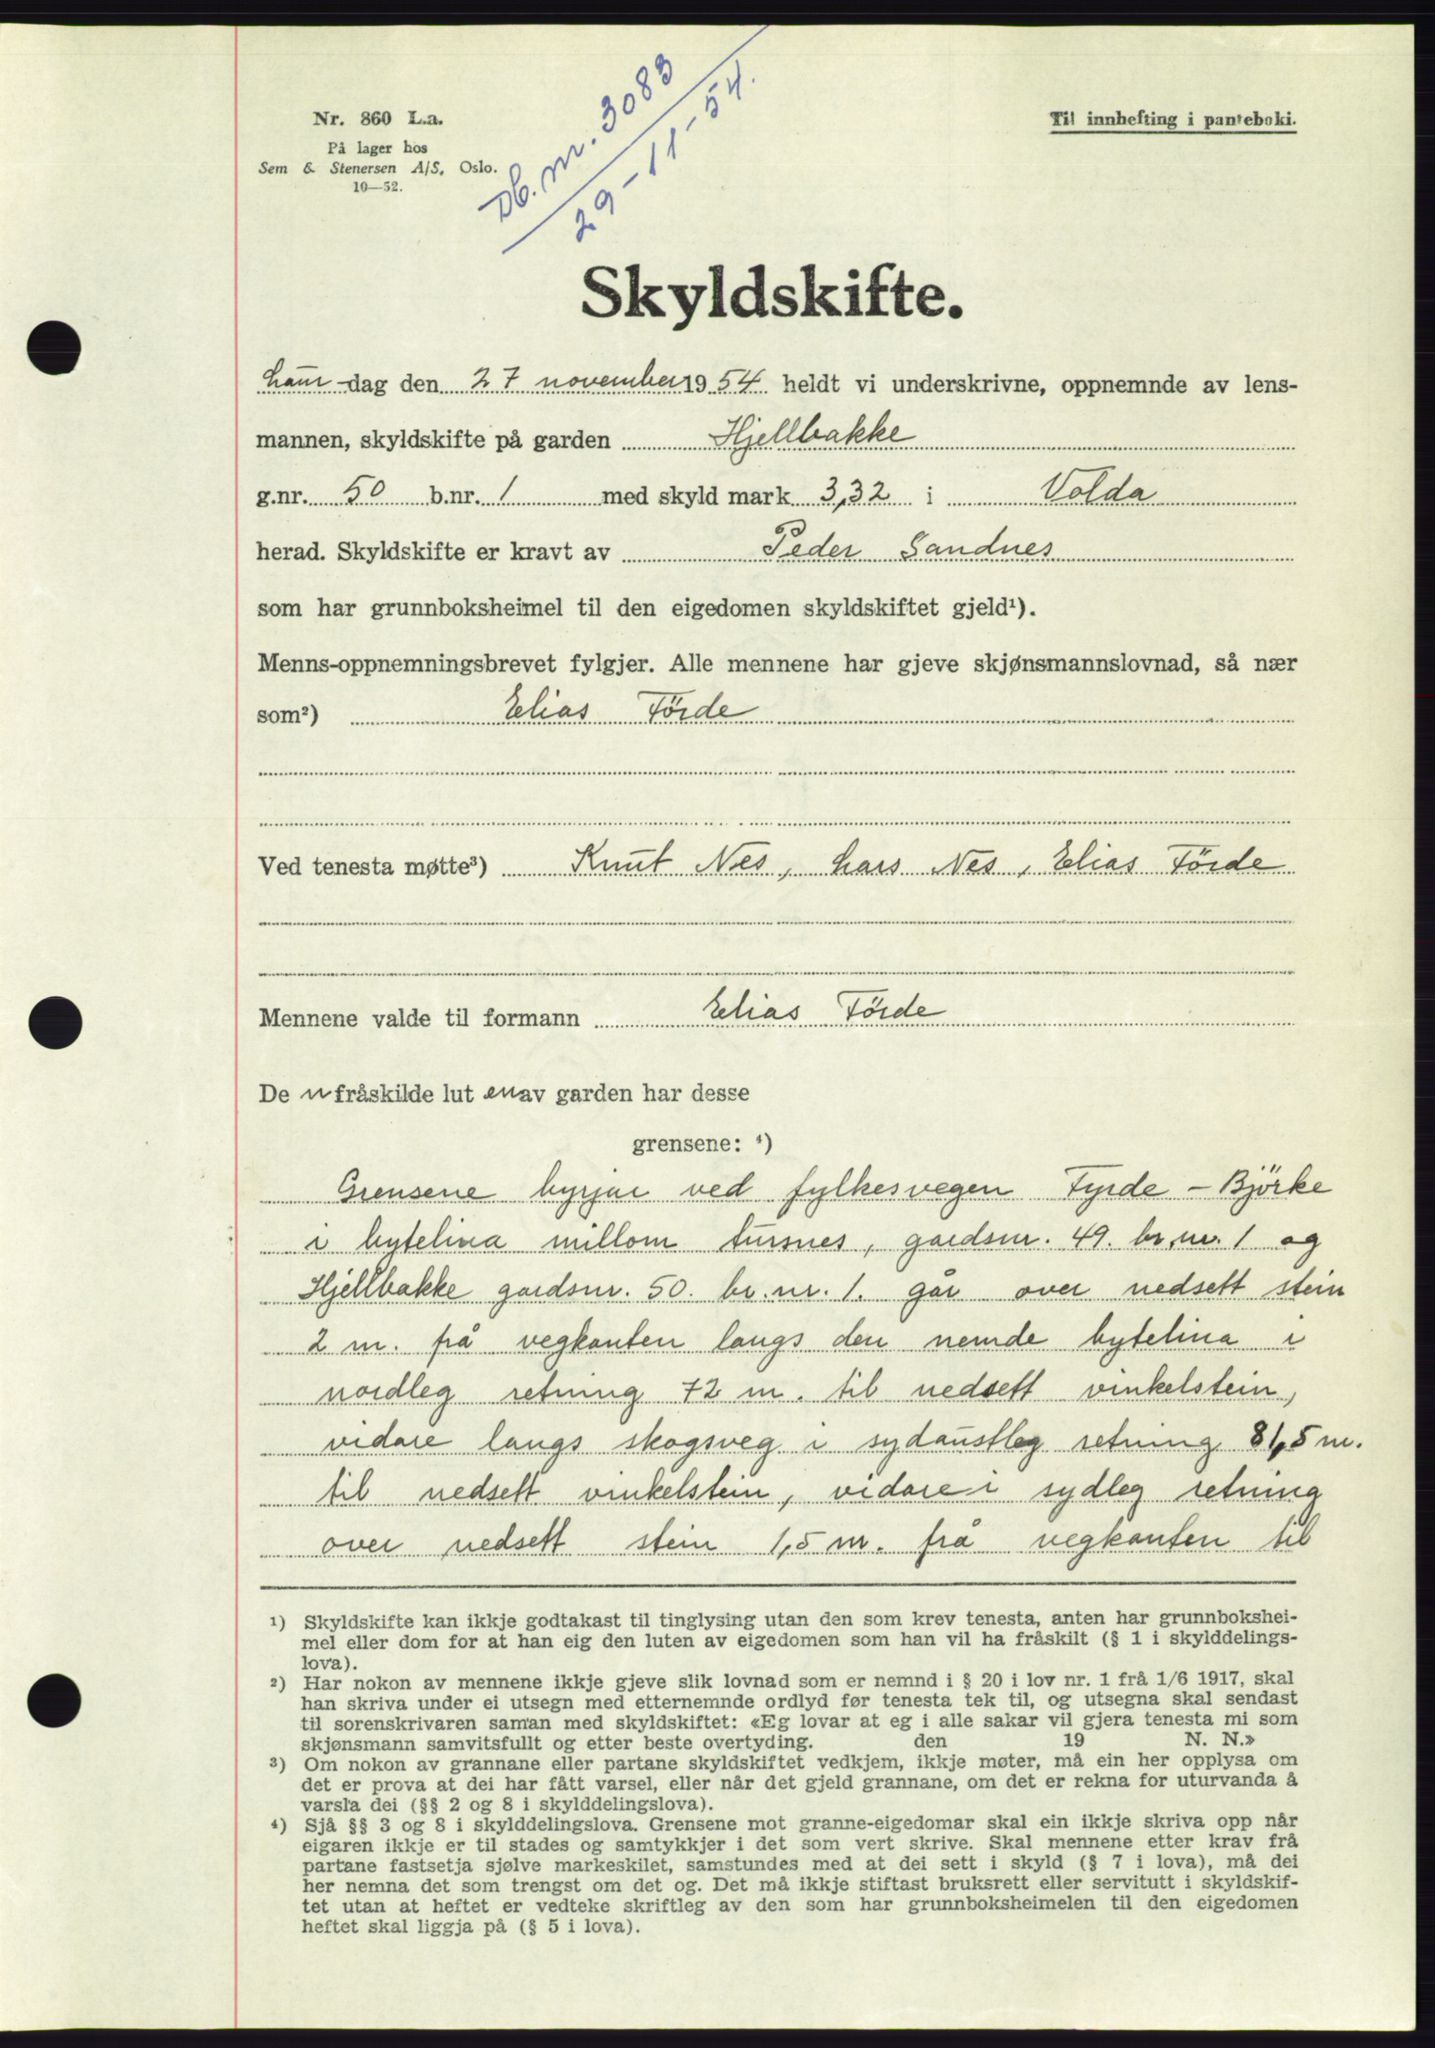 Nr. 860 L.a.
På lager hos
Sem & Stenersen A/S, Oslo.
10—52.
Db. nr. 3083
29-11-54.
Til innhefting i panteboki.
Skyldskifte.
Laur-dag den 27 november 1954 heldt vi underskrivne, oppnemnde av lens-
mannen, skyldskifte på garden Hjellbakke
g.nr. 50 b.nr. 1 med skyld mark 3,32 i Volda
herad. Skyldskifte er kravt av Peder Sandnes
som har grunnboksheimel til den eigedomen skyldskiftet gjeld¹).
Menns-oppnemningsbrevet fylgjer. Alle mennene har gjeve skjønsmannslovnad, så nær
som²) Elias Förde
Ved tenesta møtte³) Knut Nes, Lars Nes, Elias Förde
Mennene valde til formann Elias Förde
De n fråskilde lut en av garden har desse
grensene: ⁴)
Grensene byrjar ved fylkesvegen Fyrde - Björke
i bytelina millom Aursnes, gardsnr. 49. br.nr. 1 og
Hjellbakke gardsnr. 50. br. nr. 1. går over nedsett stein
2 m. frå vegkanten langs den nemde bytelina i
nordleg retning 72 m. til nedsett vinkelstein,
vidare langs skogsveg i sydaustleg retning 81,5 m.
til nedsett vinkelstein, vidare i sydleg retning
over nedsett stein 1,5 m. frå vegkanten til
¹) Skyldskifte kan ikkje godtakast til tinglysing utan den som krev tenesta, anten har grunnbokshei-
mel eller dom for at han eig den luten av eigedomen som han vil ha fråskilt (§ 1 i skylddelings-
lova).
²) Har nokon av mennene ikkje gjeve slik lovnad som er nemnd i § 20 i lov nr. 1 frå 1/6 1917, skal
han skriva under ei utsegn med etternemnde ordlyd før tenesta tek til, og utsegna skal sendast
til sorenskrivaren saman med skyldskiftet: «Eg lovar at eg i alle sakar vil gjera tenesta mi som
skjønsmann samvitsfullt og etter beste overtyding. den 19 N. N.»
³) Om nokon av grannane eller partane skyldskiftet vedkjem, ikkje møter, må ein her opplysa om
det er prova at dei har fått varsel, eller når det gjeld grannane, om det er rekna for uturvanda å
varsla dei (§§ 2 og 8 i skylddelingslova).
⁴) Sjå §§ 3 og 8 i skylddelingslova. Grensene mot granne-eigedomar skal ein ikkje skriva opp når
eigaren ikkje er til stades og samtykkjer i det som vert skrive. Skal mennene etter krav frå
partane fastsetja sjølve markeskilet, samstundes med at dei sett i skyld (§ 7 i lova), må dei
her nemna det som trengst om det og. Det må ikkje stiftast bruksrett eller servitutt i skyldskif-
tet utan at heftet er vedteke skriftleg av den som har grunnboksheimelen til den eigedomen
heftet skal liggja på (§ 5 i lova).